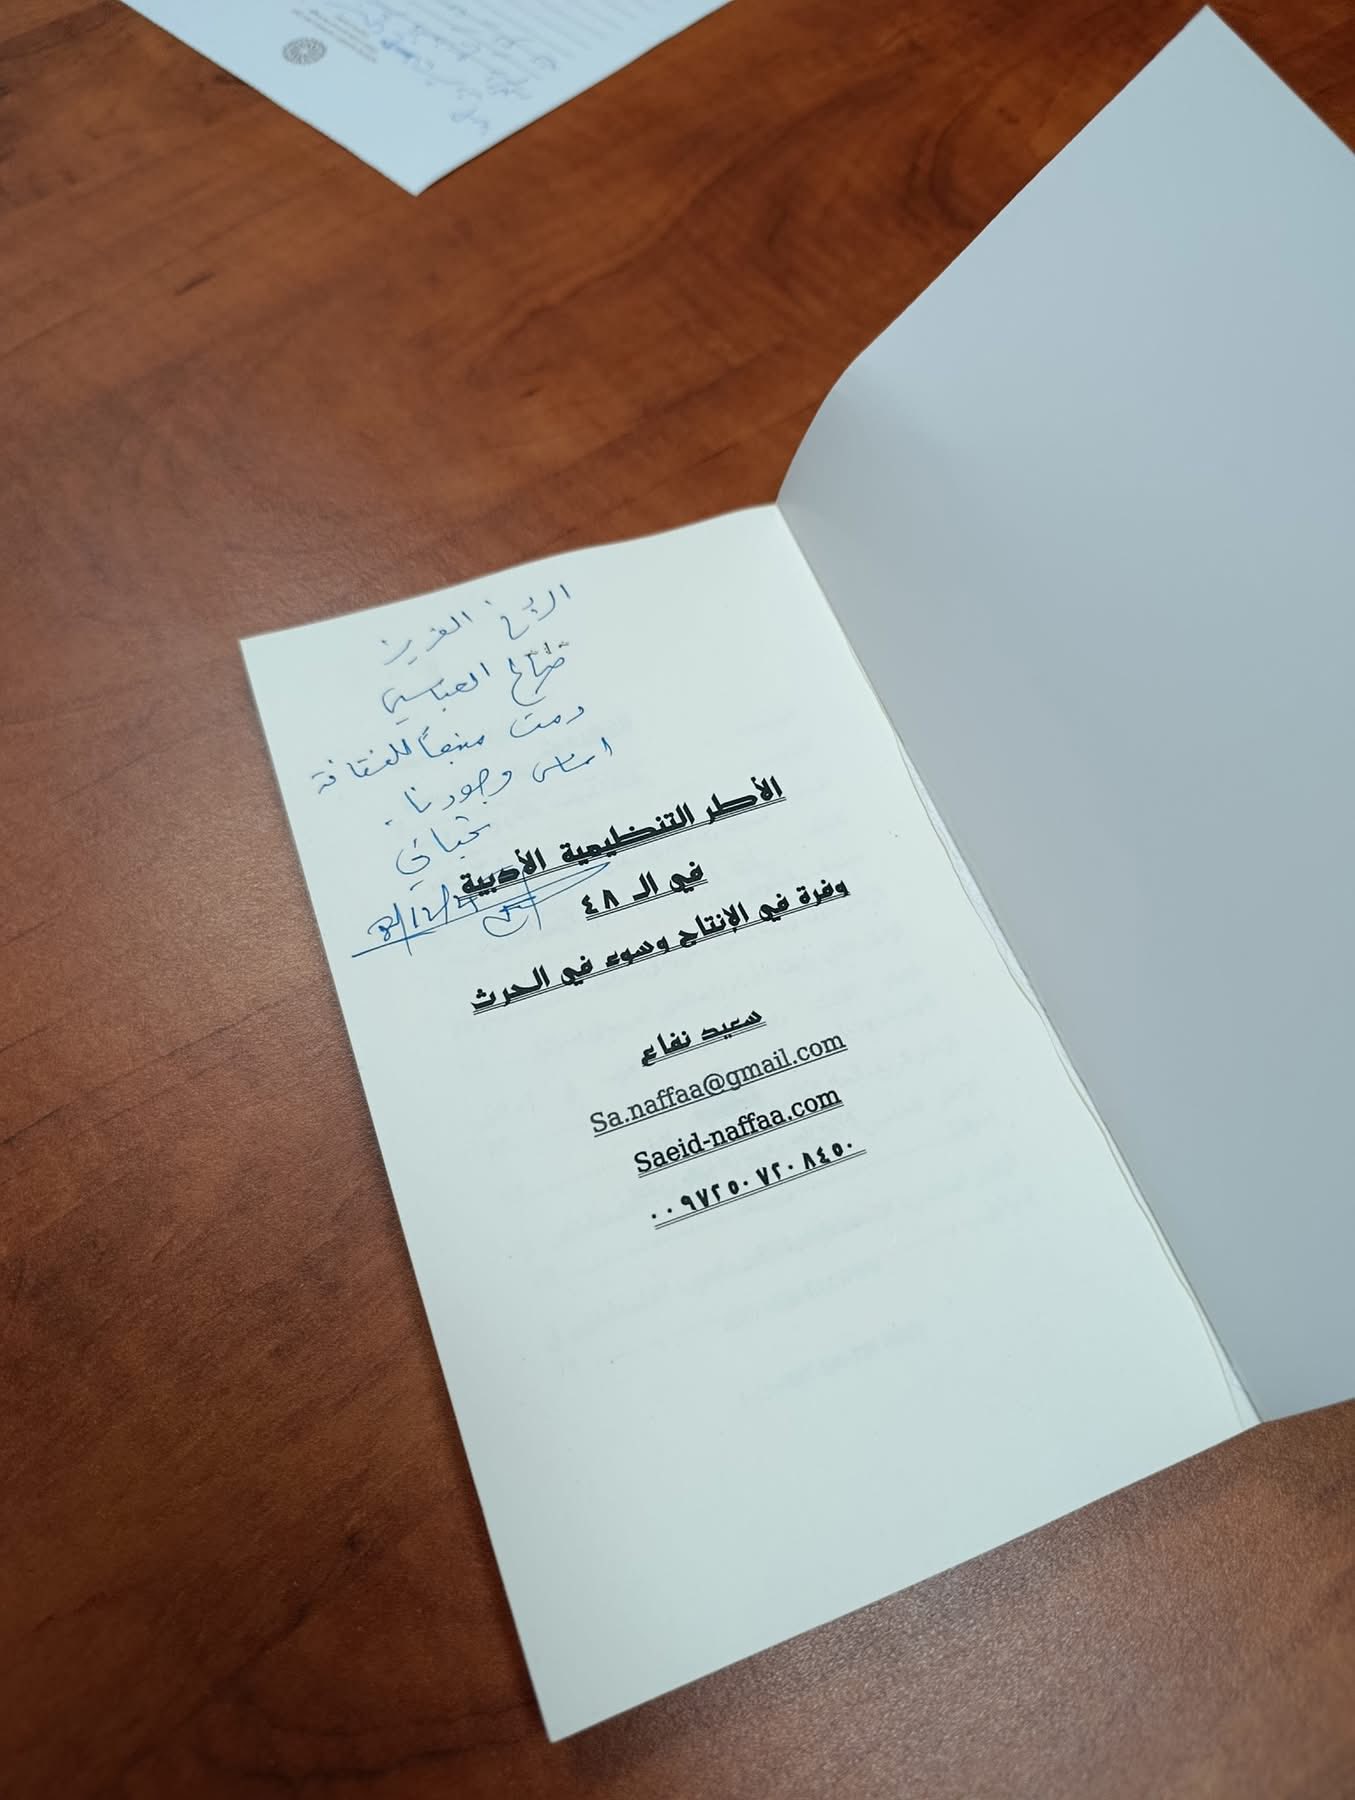 الأخ العزيز
العباسي
دمت منبعاً للثقافة
أساس وجودنا.
تحياتي
8/12/
الأطر التنظيمية الأدبية
في الـ ٤٨
وفرة في الإنتاج وسوء في الحرث
سعيد نفاع
Sa.naffaa@gmail.com
Saeid-naffaa.com
٠٠٩٧٢٥٠٧٢٠٨٤٥٠